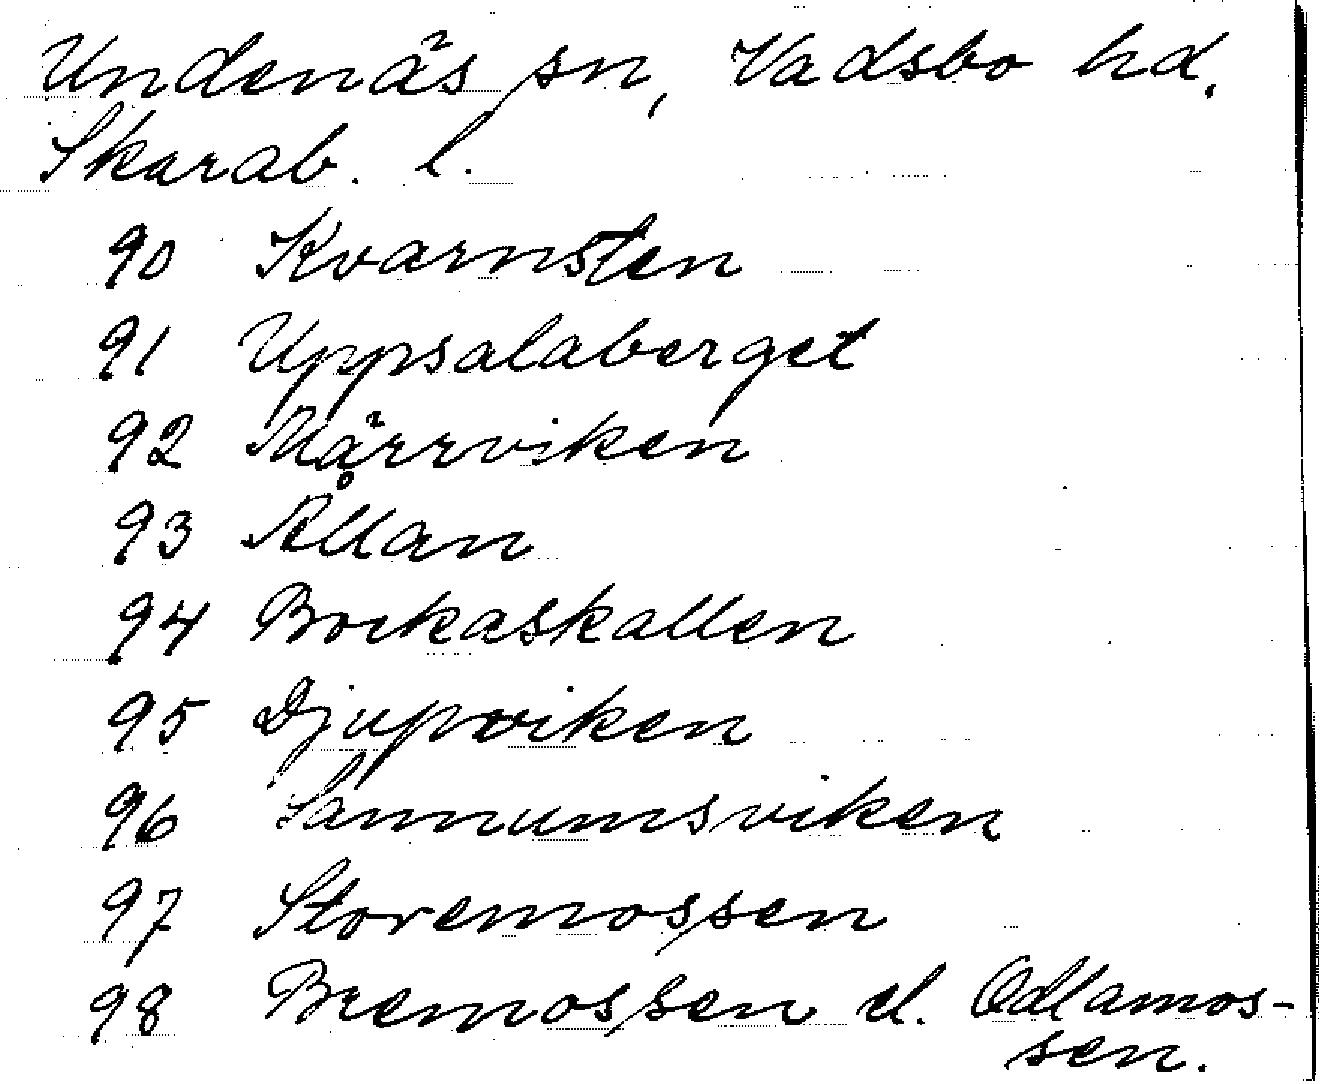 Undenäs sn, Vadsbo hd.
Skarab. l.
90 Kvarnsten
91 Uppsalaberget
92 Märrviken
93 Ållan
94 Bockaskallen
95 Djupviken
96 Sannumsviken
97 Storemossen
98 Bremossen el. Odlamos-
sen.